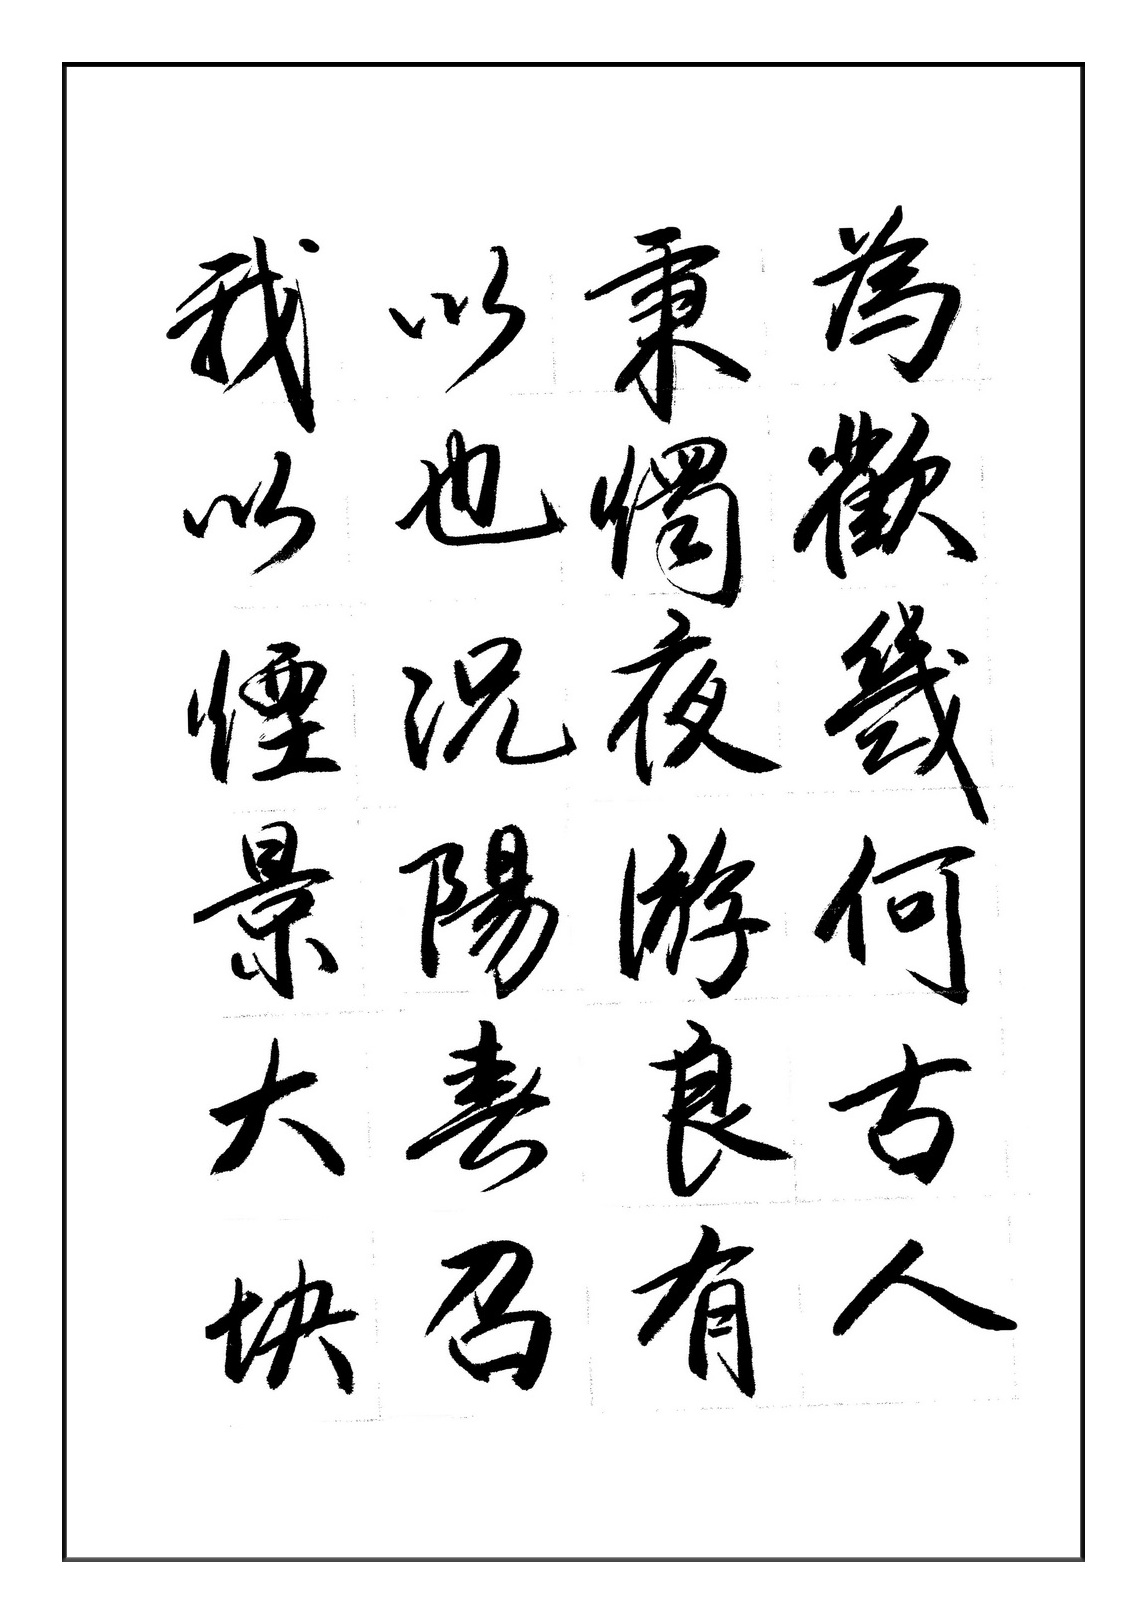 為歡幾何古人
秉燭夜游良有
以也況陽春召
我以煙景大块